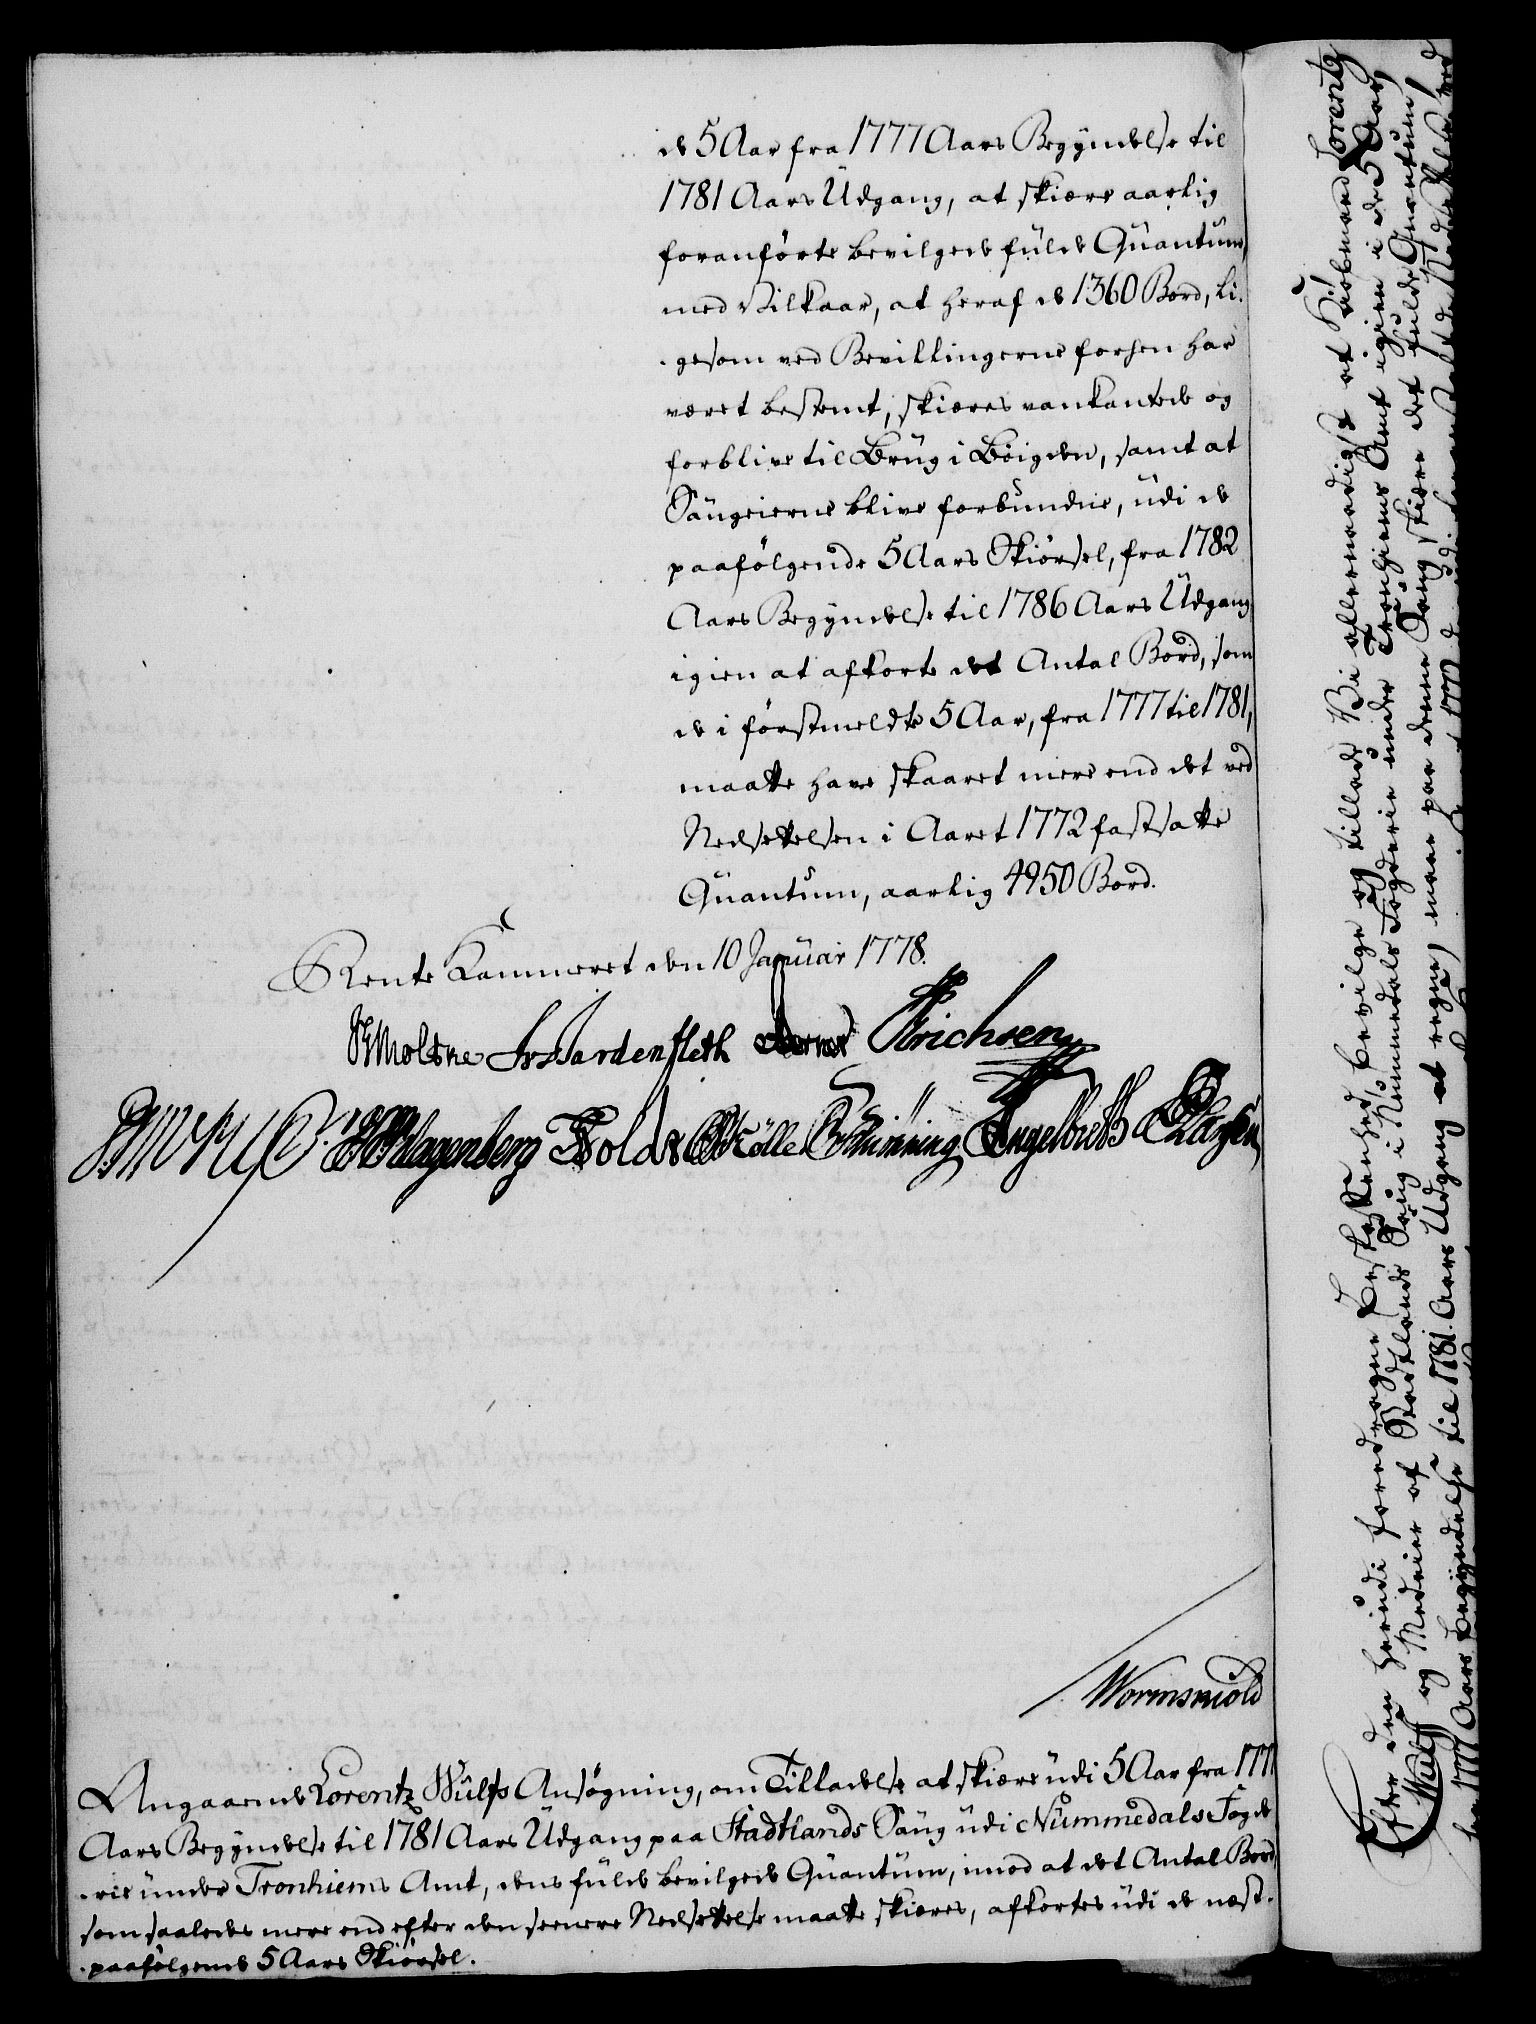 de 5 Aar fra 1777 Aars Begyndelse til
1781 Aars Udgang, at skiære aarlig
foranførte bevilgede fulde Quantum,
med Vilkaar, at heraf de 1360 Bord, li-
-gesom ved Bevillingerne forhen har
været bestemt, skiæres vankantede og
forblive til Brug i Bøigden, samt at
Saugeierne blive forbundne, udi de
paafølgende 5 Aars Skiørsel, fra 1782
Aars Begyndelse til 1786 Aars Udgang
igien at afkorte det Antal Bord, som
de iførstmeldte 5 Aar, fra 1777 til 1781,
maatte have skaaret mere end det ved
Nedsettelsen i Aaret 1772 fastsatte
Quantum, aarlig 4950 Bord.
Rente Kammeret den 10 Januar 1778.
Moltke Fr. Wardenfleth Erichsen
Klagenberg Holdt Mölle Grünning Engelbreth Clausen
Wormskiold
Angaaende Lorentz Wulfs Ansøgning, om Tilladelse at skiære udi 5 Aar fra 1777
Aars Begyndelse til 1781 Aars Udgang paa Stadtlands Saug udi Nummedals Fogde-
-rie under Tronhiems Amt, dens fulde bevilgede Quantum, imod at det Antal Bord,
som saaledes mere end efter den seenere Nedsettelse maatte skiæres, afkortes udi de næst-
-paafølgende 5 Aars Skiørsel.
Efter den herudi foredragne Beskaffenhed, bevilge og tillade Vi allernaadigst at Kiøbmand Lorentz
Wulff og Medeiere af Stadtlands Saug i Nummedals Fogderie under Tronhiems Amt igien i de 5 Aar,
fra 1777 Aars Begyndelse til 1781 Aars Udgang at regne, maae paa denne Saug skiære det fulde Quantum